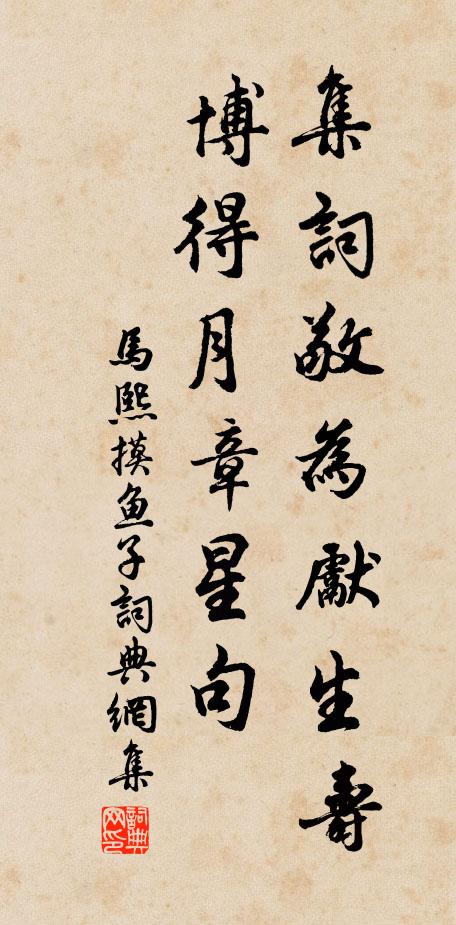 集詞敬為獻生壽
博得月章星句
馬熙摸鱼子詞典網集
詞典网印